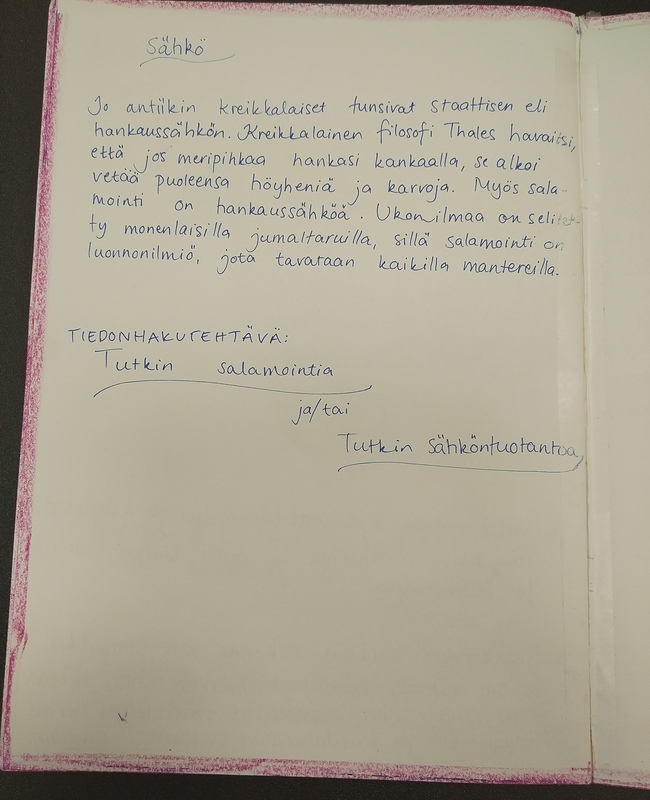 Sähkö
Jo antiikin kreikkalaiset tunsivat staattisen eli
hankaussähkön. Kreikkalainen filosofi Thales havaitsi,
että jos meripihkaa hankasi kankaalla, se alkoi
vetää puoleensa höyheniä ja karvoja. Myös sala-
mointi on hankaussähköä. Ukonilmaa on selitet-
ty monenlaisilla jumaltaruilla, sillä salamointi on
luonnonilmiö, jota tavataan kaikilla mantereilla.
TIEDONHAKUTEHTÄVÄ:
Tutkin salamointia
ja/tai
Tutkin sähköntuotantoa